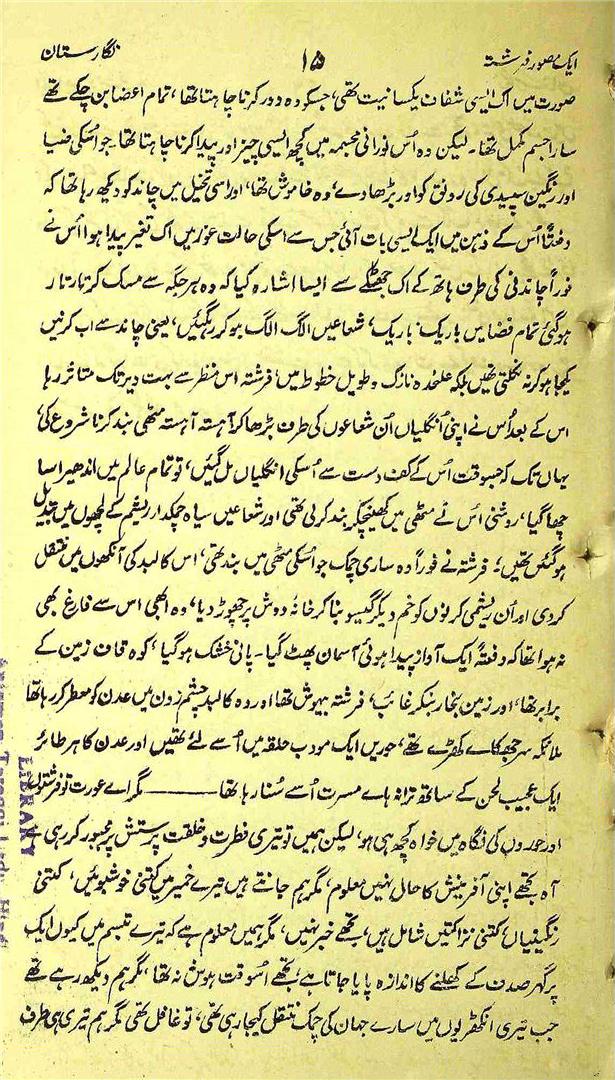 ایک مصور فرشتہ ۱۵ نگارستان
صورت میں اک ایسی شفاف یکسانیت تھی، جسکو وہ دور کرنا چاہتا تھا، تمام اعضا بن چکے تھے
سارا جسم مکمل تھا۔ لیکن وہ اُس نورانی مجسمہ میں کچھ ایسی چیز اور پیدا کرنا چاہتا تھا جو اُسکی ضیا
اور رنگین سپیدی کی رونق کو اور بڑھا دے، وہ خاموش تھا، اور اسی تخیل میں چاند کو دیکھ رہا تھا کہ
دفعتاً اُس کے ذہن میں ایک ایسی بات آئی جس سے اسکی حالت غور میں اک تغیر پیدا ہوا اُس نے
فوراً چاندنی کی طرف ہاتھ کے اک جھٹکے سے ایسا اشارہ کیا کہ وہ ہر جگہ سے مسک کر تار تار
ہوگئی تمام فضا میں باریک باریک، شعاعیں الگ الگ ہو کر رہگئیں، یعنی چاند سے اب کرنیں
یکجا ہو کر نہ نکلتی تھیں بلکہ علحدہ نازک و طویل خطوط میں، فرشتہ اس منظر سے بہت دیر تک متاثر رہا
اس کے بعد اُس نے اپنی اُنگلیاں اُن شعاعوں کی طرف بڑھا کر آہستہ آہستہ مٹھی بند کرنا شروع کی،
یہاں تک کہ جسوقت اُس کے کف دست سے اُسکی انگلیاں مل گئیں، تو تمام عالم میں اندھیرا سا
چھا گیا، روشنی اس نے مٹھی میں کھینچکر بند کر لی تھی اور شعاعیں سیاہ چمکدار ریشم کے لچھوں میں تبدیل
ہو گئیں تھیں؛ فرشتہ نے فوراً وہ ساری چمک جو اُسکی مٹھی میں بند تھی، اس کالبد کی آنکھوں میں منتقل
کر دی اور اُن ریشمی کرنوں کو خم دیکر گیسو بنا کر خانۂ دوش پر چھوڑ دیا، وہ ابھی اس سے فارغ بھی
نہ ہوا تھا کہ دفعتہً ایک آواز پیدا ہوئی آسمان پھٹ گیا۔ پانی خشک ہو گیا، کوہ قاف زمین کے
برابر تھا، اور زمین بخار بنکر غائب، فرشتہ بیہوش تھا اور وہ کالبد چشم زدن میں عدن کو معطر کر رہا تھا
ملائکہ سر جھکائے کھڑے تھے، حوریں ایک مودب حلقہ میں اُسے لئے تھیں اور عدن کا ہر طائر
ایک عجیب لحن کے ساتھ ترانہ ہاے مسرت اُسے سُنا رہا تھا ——— مگر اے عورت تو فرشتوں
اور حوروں کی نگاہ میں خواہ کچھ ہی ہو، لیکن ہمیں تو تیری فطرت و خلقت پرستش پر مجبور کر رہی ہے
آہ تجھے اپنی آفرینش کا حال نہیں معلوم، مگر ہم جانتے ہیں تیرے خمیر میں کتنی خوشبوئیں، کتنی
رنگینیاں، کتنی نزاکتیں شامل ہیں، تجھے خبر نہیں، مگر ہمیں معلوم ہے کہ تیرے تبسم میں کیوں ایک
پُر گہر صدف کے کھلنے کا اندازہ پایا جاتا ہے، تجھے اُسوقت ہوش نہ تھا، مگر ہم دیکھ رہے تھے
جب تیری انکھڑیوں میں سارے جہان کی چمک منتقل کیجا رہی تھی، تو غافل تھی مگر ہم تیری ہی طرف
LIBRARY